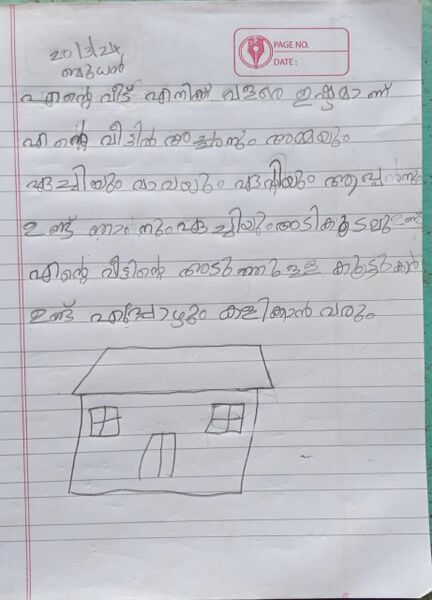 PAGE NO.
DATE :
20/3/24
ബുധൻ
എന്റെ വീട് എനിക്ക് വളരെ ഇഷ്ടമാണ്
എന്റെ വീട്ടിൽ അച്ഛനും അമ്മയും
ചേച്ചിയും വാവയും
ഉണ്ട് ഞാനും ചേച്ചിയും അടികൂടലുണ്ട്
എന്റെ വീട്ടിന്റെ അടുത്തുള്ള കുട്ടികൾ
ഉണ്ട് എപ്പോഴും കളിക്കാൻ വരും